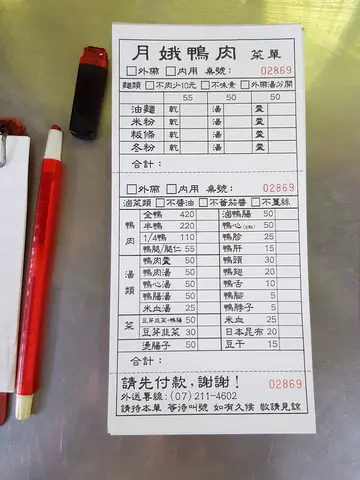 月娥鴨肉 菜單
□外帶 □內用 桌號： 02869
麵類 □不肉少10元 □不味素 □外帶湯分開
55 50 50
油麵 乾 湯 羹
米粉 乾 湯 羹
粄條 乾 湯 羹
冬粉 乾 湯 羹
合計：
□外帶 □內用 桌號： 02869
滷菜類 □不醬油 □不蕃茄醬 □不薑絲
鴨肉 全鴨 420 滷鴨腸 50
半鴨 220 鴨心(6粒) 50
1/4鴨 110 鴨胗 25
鴨腿/腿仁 55 鴨肝 15
湯類 鴨肉羹 50 鴨頭 30
鴨肉湯 50 鴨翅 20
鴨心湯 50 鴨舌 10
鴨腸湯 50 鴨腳 5
米血湯 25 鴨脖子 5
菜 豆芽韭菜+鴨腸 50 米血 25
豆芽韭菜 30 日本昆布 20
燙腸子 50 豆干 15
合計：
請先付款，謝謝！ 02869
外送專線：(07)211-4602
請持本單 等待叫號 如有久候 敬請見諒